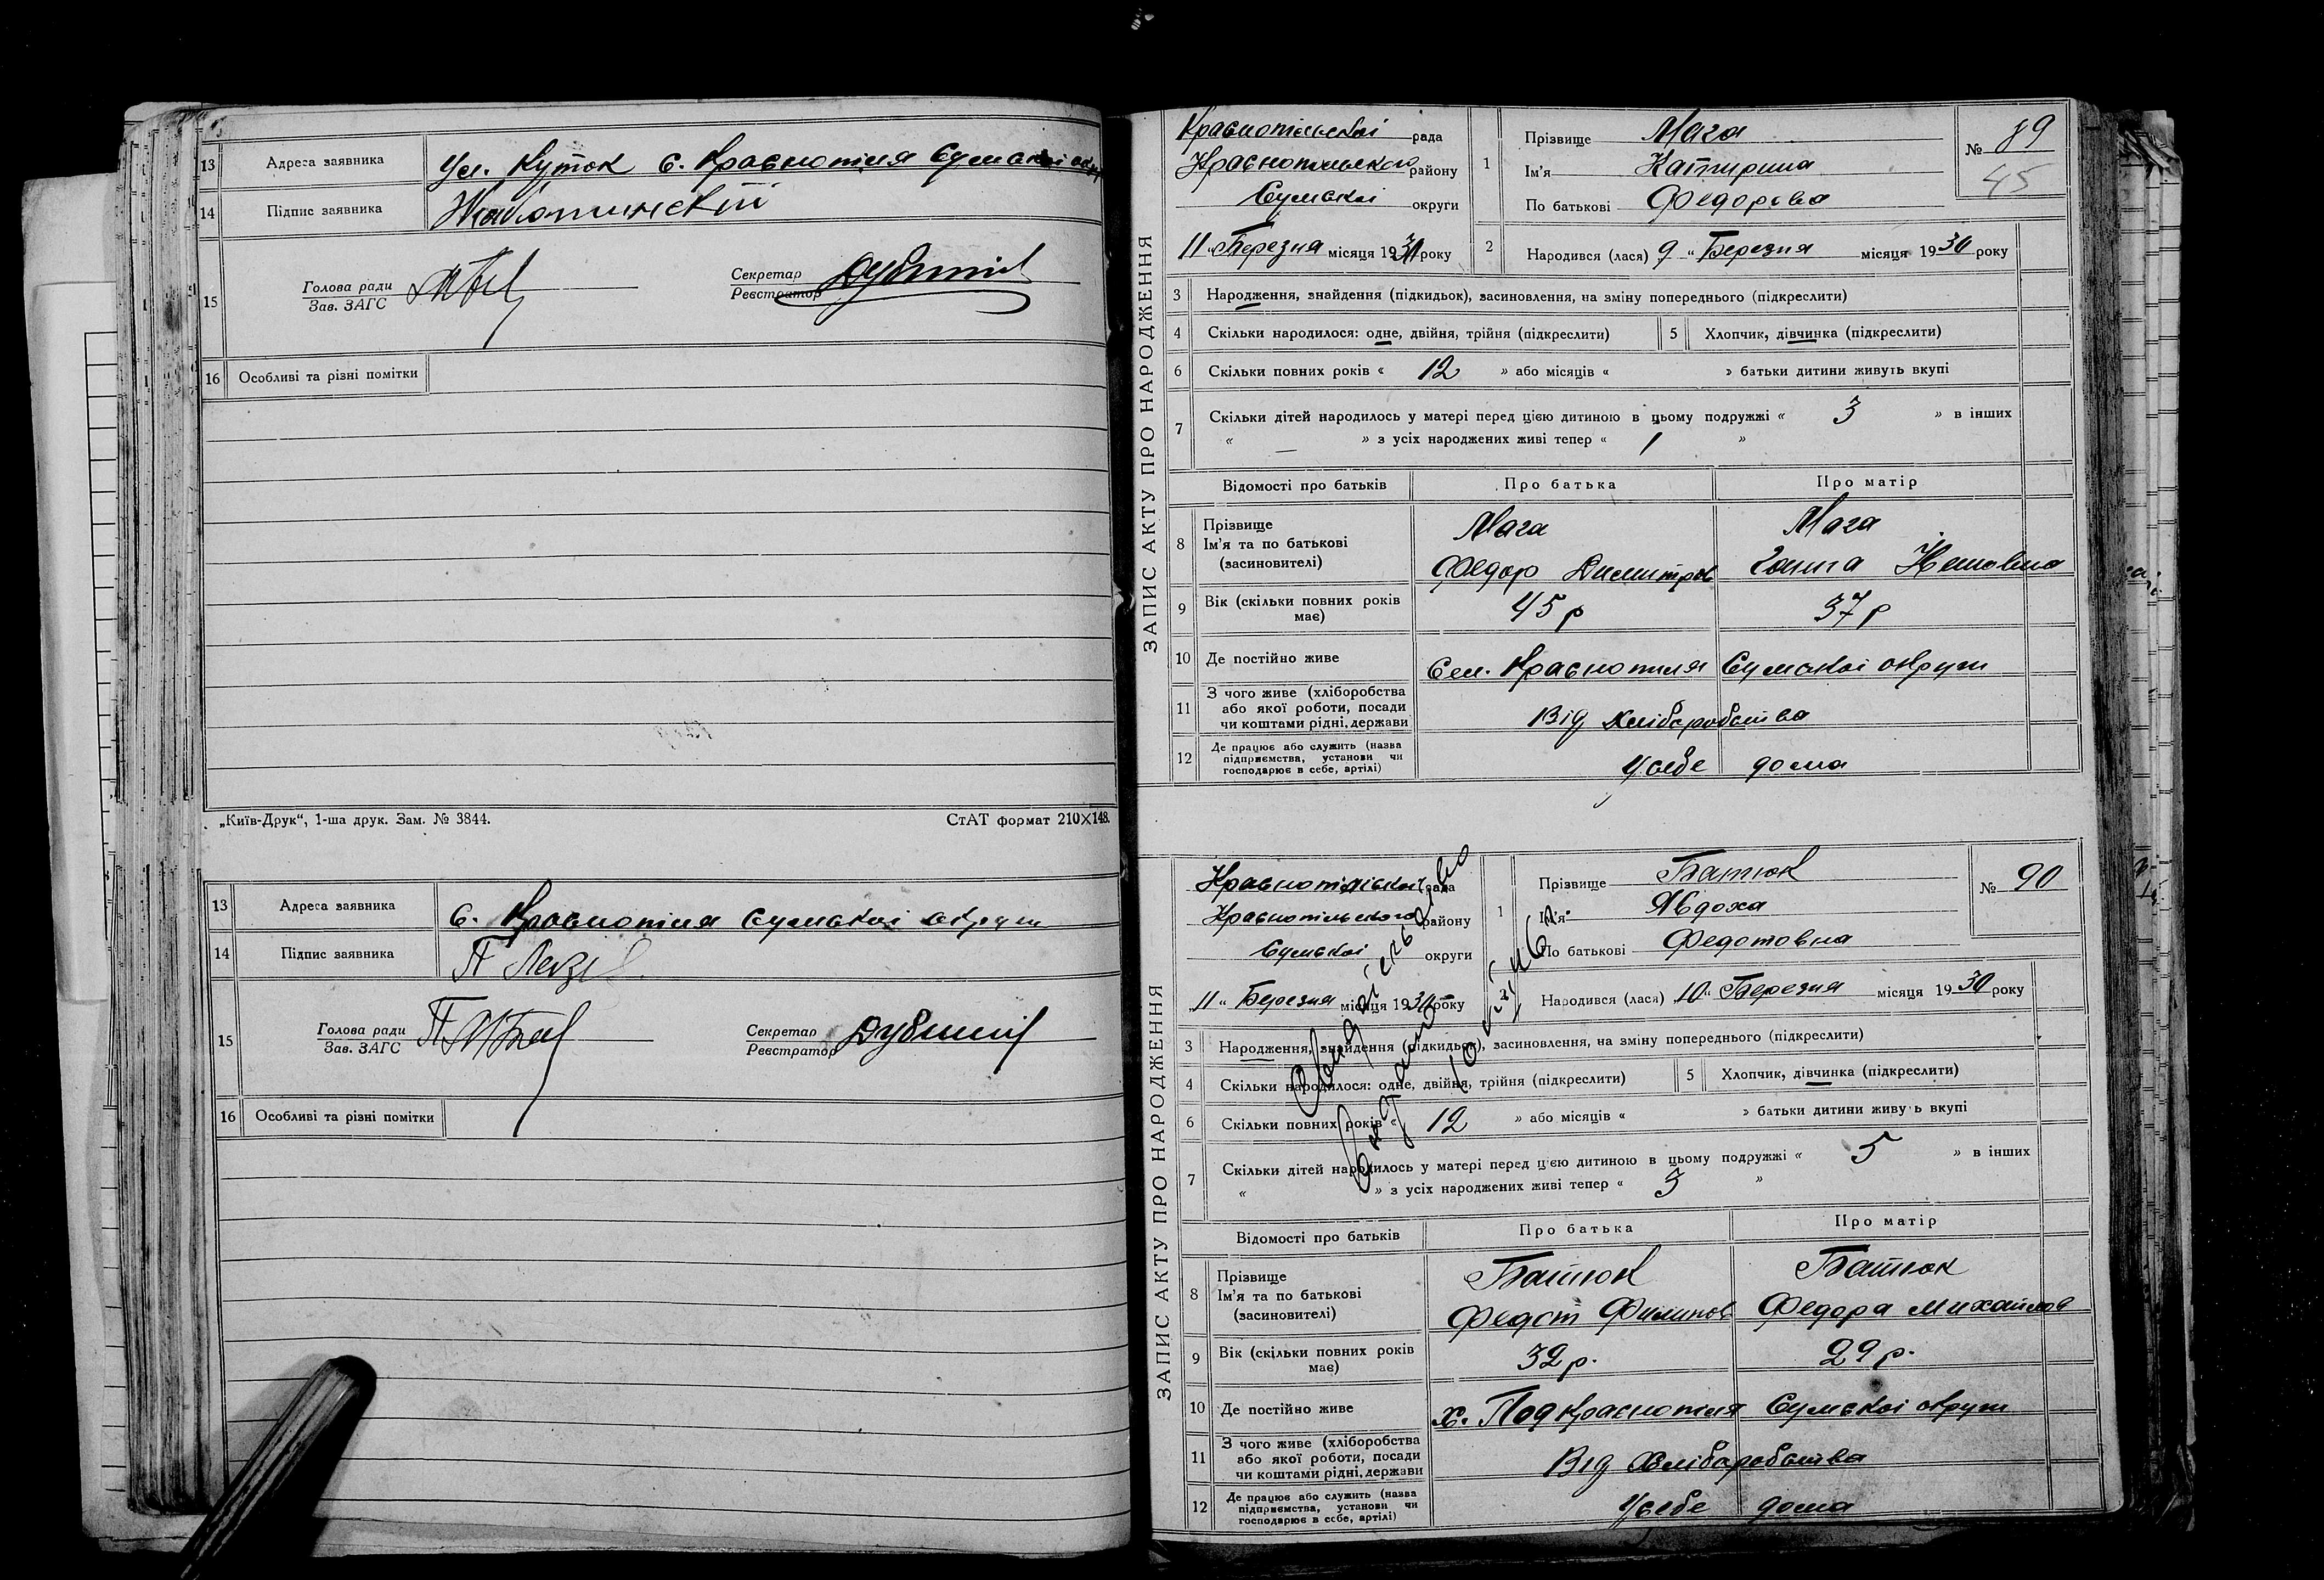 13 Адреса заявника Ул. Куток с. Краснопілля Сумської окр
14 Підпис заявника
15 Голова ради Секретар
Зав. ЗАГС Реєстратор
16 Особливі та різні помітки
„Київ-Друк“, 1-ша друк. Зам. № 3844. СтАТ формат 210×148.
13 Адреса заявника С. Краснопілля Сумської округи
14 Підпис заявника
15 Голова ради Секретар
Зав. ЗАГС Реєстратор
16 Особливі та різні помітки
ЗАПИС АКТУ ПРО НАРОДЖЕННЯ
Краснопільської рада
Краснопільського району
Сумської округи
11 „ Березня місяця 1930 року
1 Прізвище Мага
Ім'я Катирина
По батькові Федорова
№ 89
45
2 Народився (лася) 9 „ Березня місяця 1930 року
3 Народження, знайдення (підкидьок), засиновлення, на зміну попереднього (підкреслити)
4 Скільки народилося: одне, двійня, трійня (підкреслити) 5 Хлопчик, дівчинка (підкреслити)
6 Скільки повних років « 12 » або місяців « » батьки дитини живуть вкупі
7 Скільки дітей народилось у матері перед цією дитиною в цьому подружжі « 3 » в інших
« — » з усіх народжених живі тепер « 1 »
Відомості про батьків Про батька Про матір
8 Прізвище Мага Мага
Ім'я та по батькові
(засновителі) Федор Димитров Ганна
9 Вік (скільки повних років має) 45 р 37 р
10 Де постійно живе Сел. Краснопілля Сумської округи
11 З чого живе (хліборобства
або якої роботи, посади
чи коштами рідні, держави Від хліборобства
12 Де працює або служить (назва
підприємства, установи чи
господарює в себе, артілі) У себе дома
ЗАПИС АКТУ ПРО НАРОДЖЕННЯ
Краснопільської рада
Краснопільського району
Сумської округи
„ 11 „ Березня місяця 1930 року
1 Прізвище Батюк
Ім'я Явдоха
По батькові Федотовна
№ 90
2 Народився (лася) 10 „ Березня місяця 1930 року
3 Народження, знайдення (підкидьок), засиновлення, на зміну попереднього (підкреслити)
4 Скільки народилося: одне, двійня, трійня (підкреслити) 5 Хлопчик, дівчинка (підкреслити)
6 Скільки повних років « 12 » або місяців « » батьки дитини живуть вкупі
7 Скільки дітей народилось у матері перед цією дитиною в цьому подружжі « 5 » в інших
« » з усіх народжених живі тепер « 3 »
Відомості про батьків Про батька Про матір
8 Прізвище Батюк Батюк
Ім'я та по батькові
(засиновителі) Федот Филипов Федора Михайлов
9 Вік (скільки повних років має) 32 р. 29 р.
10 Де постійно живе х. Подкраснопілля Сумської округи
11 З чого живе (хліборобства
або якої роботи, посади
чи коштами рідні, держави Від Хліборобства
12 Де працює або служить (назва
підприємства, установи чи
господарює в себе, артілі) У себе дома